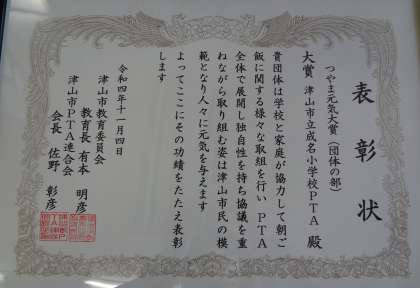 表彰状
つやま元気大賞(団体の部)
大賞 津山市立成名小学校PTA 殿
貴団体は学校と家庭が協力して朝ご
飯に関する様々な取組を行い PTA
全体で展開し独自性を持ち協議を重
ねながら取り組む姿は津山市民の模
範となり人々に元気を与えます
よってここにその功績をたたえ表彰
します
令和四年十一月四日
津山市教育委員会
教育長 有本 明彦
津山市PTA連合会
会長 佐野 彰彦